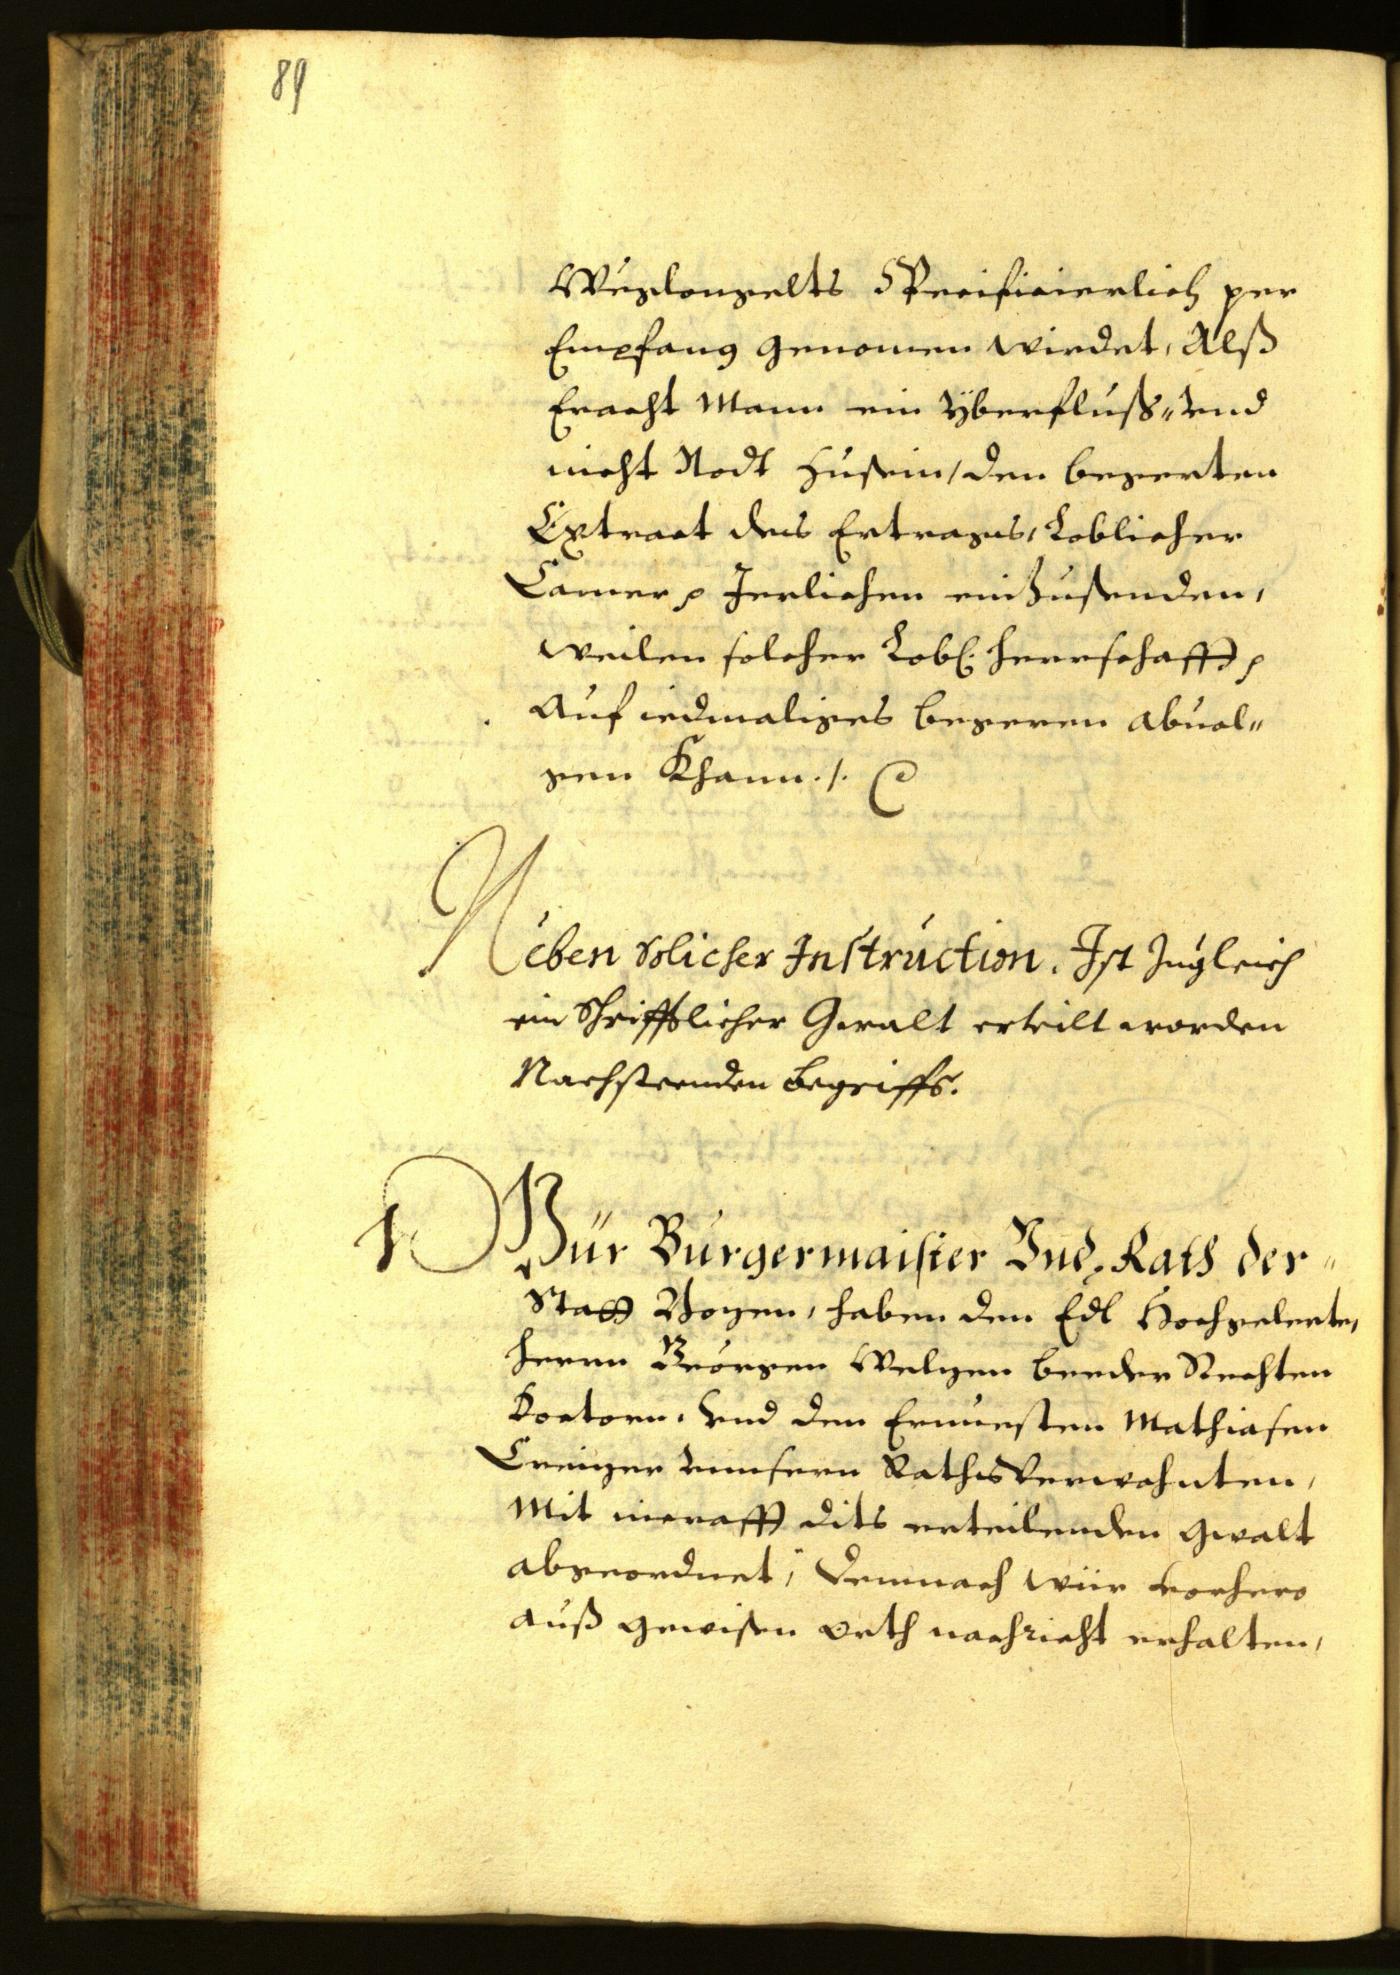 89
Weglongelts SPecificierlich per
Empfang genomen wirdet, Alß
Eracht Mann ein yberfluß, vnd
nicht Nodt Zusein, den begerten
Extract des Ertrages, Loblicher
Camer p Jerlichen einZusenden,
weilen solcher Lobl: herrschafft p
Auf iedmaliges begeren abuol„
gen Khann ./.
Neben solicher Instruction, Ist Zugleich
ein Schrifftlicher Gwalt erteilt worden
Nachsteenden begriffs.
Wür Burgermaister Vnd Rath der
Statt Bozen, haben den Edl Hochgelerten,
herrn Georgen Welzen beeder Rechten
Doctorn, Vnd den Ernuesten Mathiasen
vnnsern RathsVerwohnten,
Mit Crafft dits erteilenden gwalt
abgeordnet, Demnach wür vorhero
auß gewisen orth nachricht erhalten,